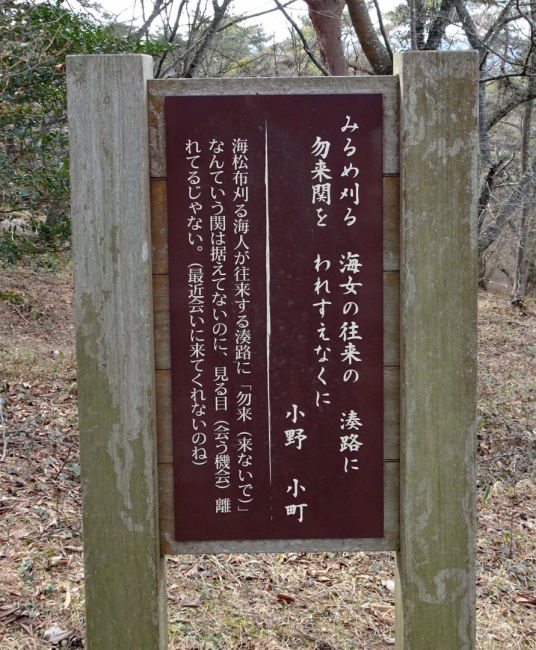 みるめ刈る　海女の往来の　湊路に
勿来関を　われすえなくに
小野　小町
海松布刈る海人が往来する湊路に「勿来（来ないで）」
なんていう関は据えてないのに、見る目（会う機会）離
れてるじゃない。（最近会いに来てくれないのね）